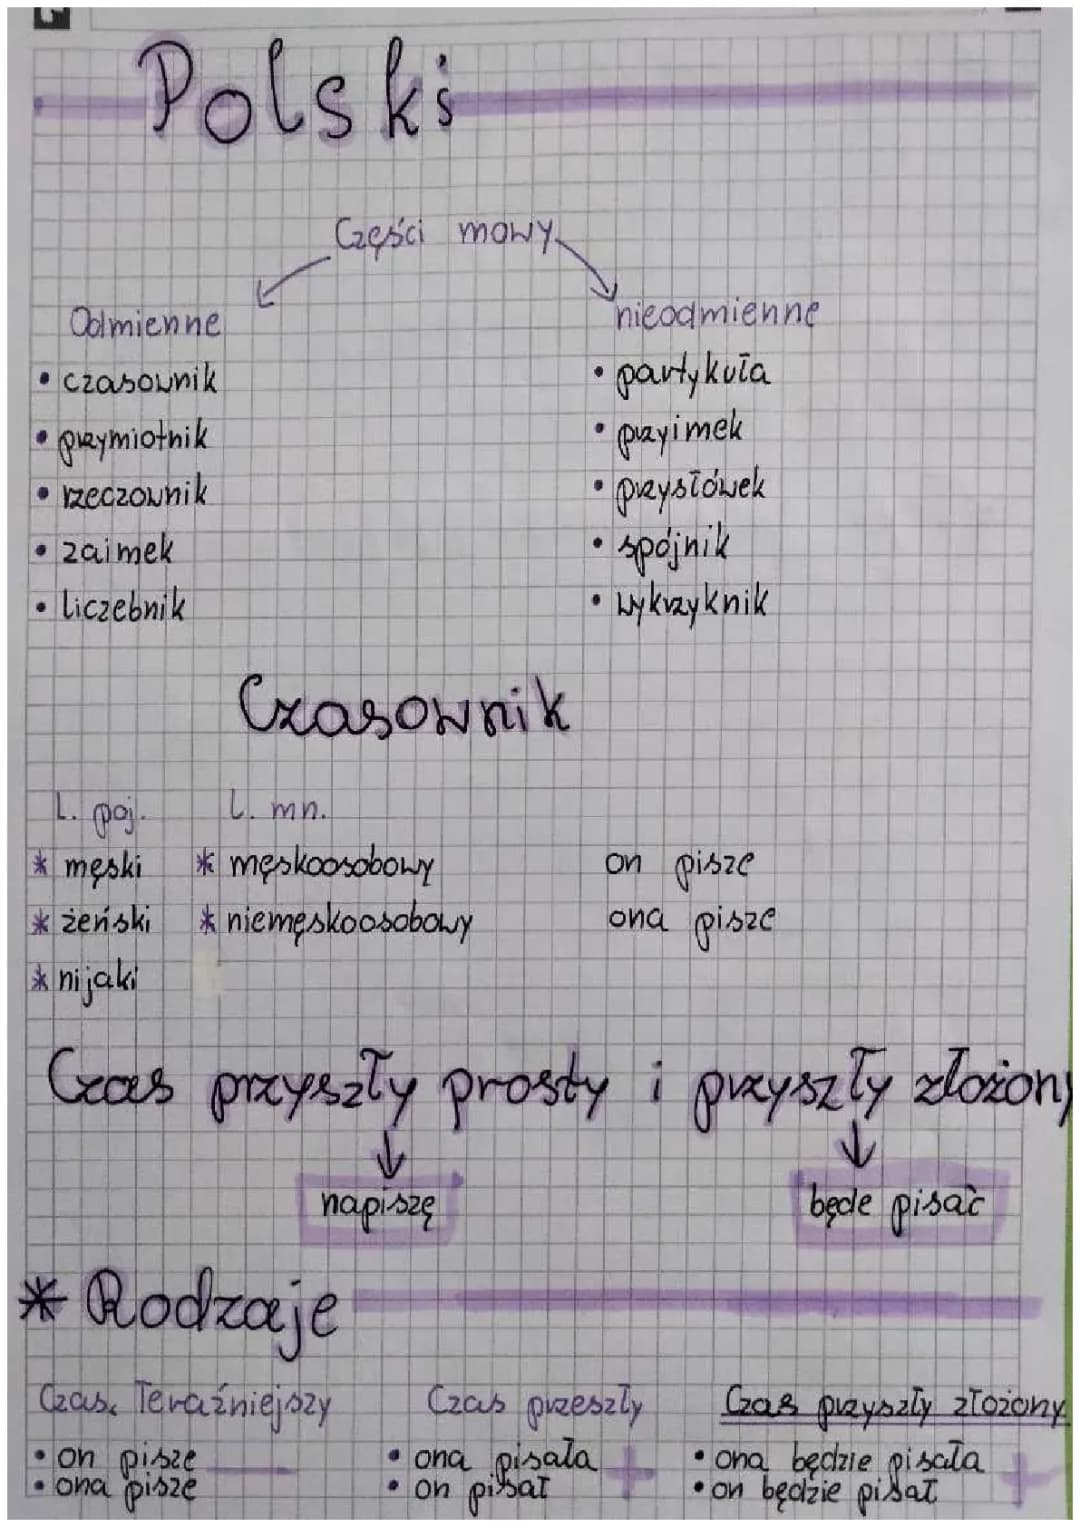 Polski
Części mowy
Odmienne
• czasownik
• przymiotnik
• rzeczownik
• zaimek
• liczebnik
nieodmienne
• partykuła
• przyimek
• przysłówek
• spójnik
• wykrzyknik
Czasownik
L. poj. L. mn.
* męski * męskoosobowy on pisze
* żeński * niemęskoosobowy ona pisze
* nijaki
Czas przyszły prosty i przyszły złożony
napiszę będe pisać
* Rodzaje
Czas Teraźniejszy
• on pisze –
• ona pisze
Czas przeszły
• ona pisała +
• on pisał
Czas przyszły złożony
• ona będzie pisała +
• on będzie pisał